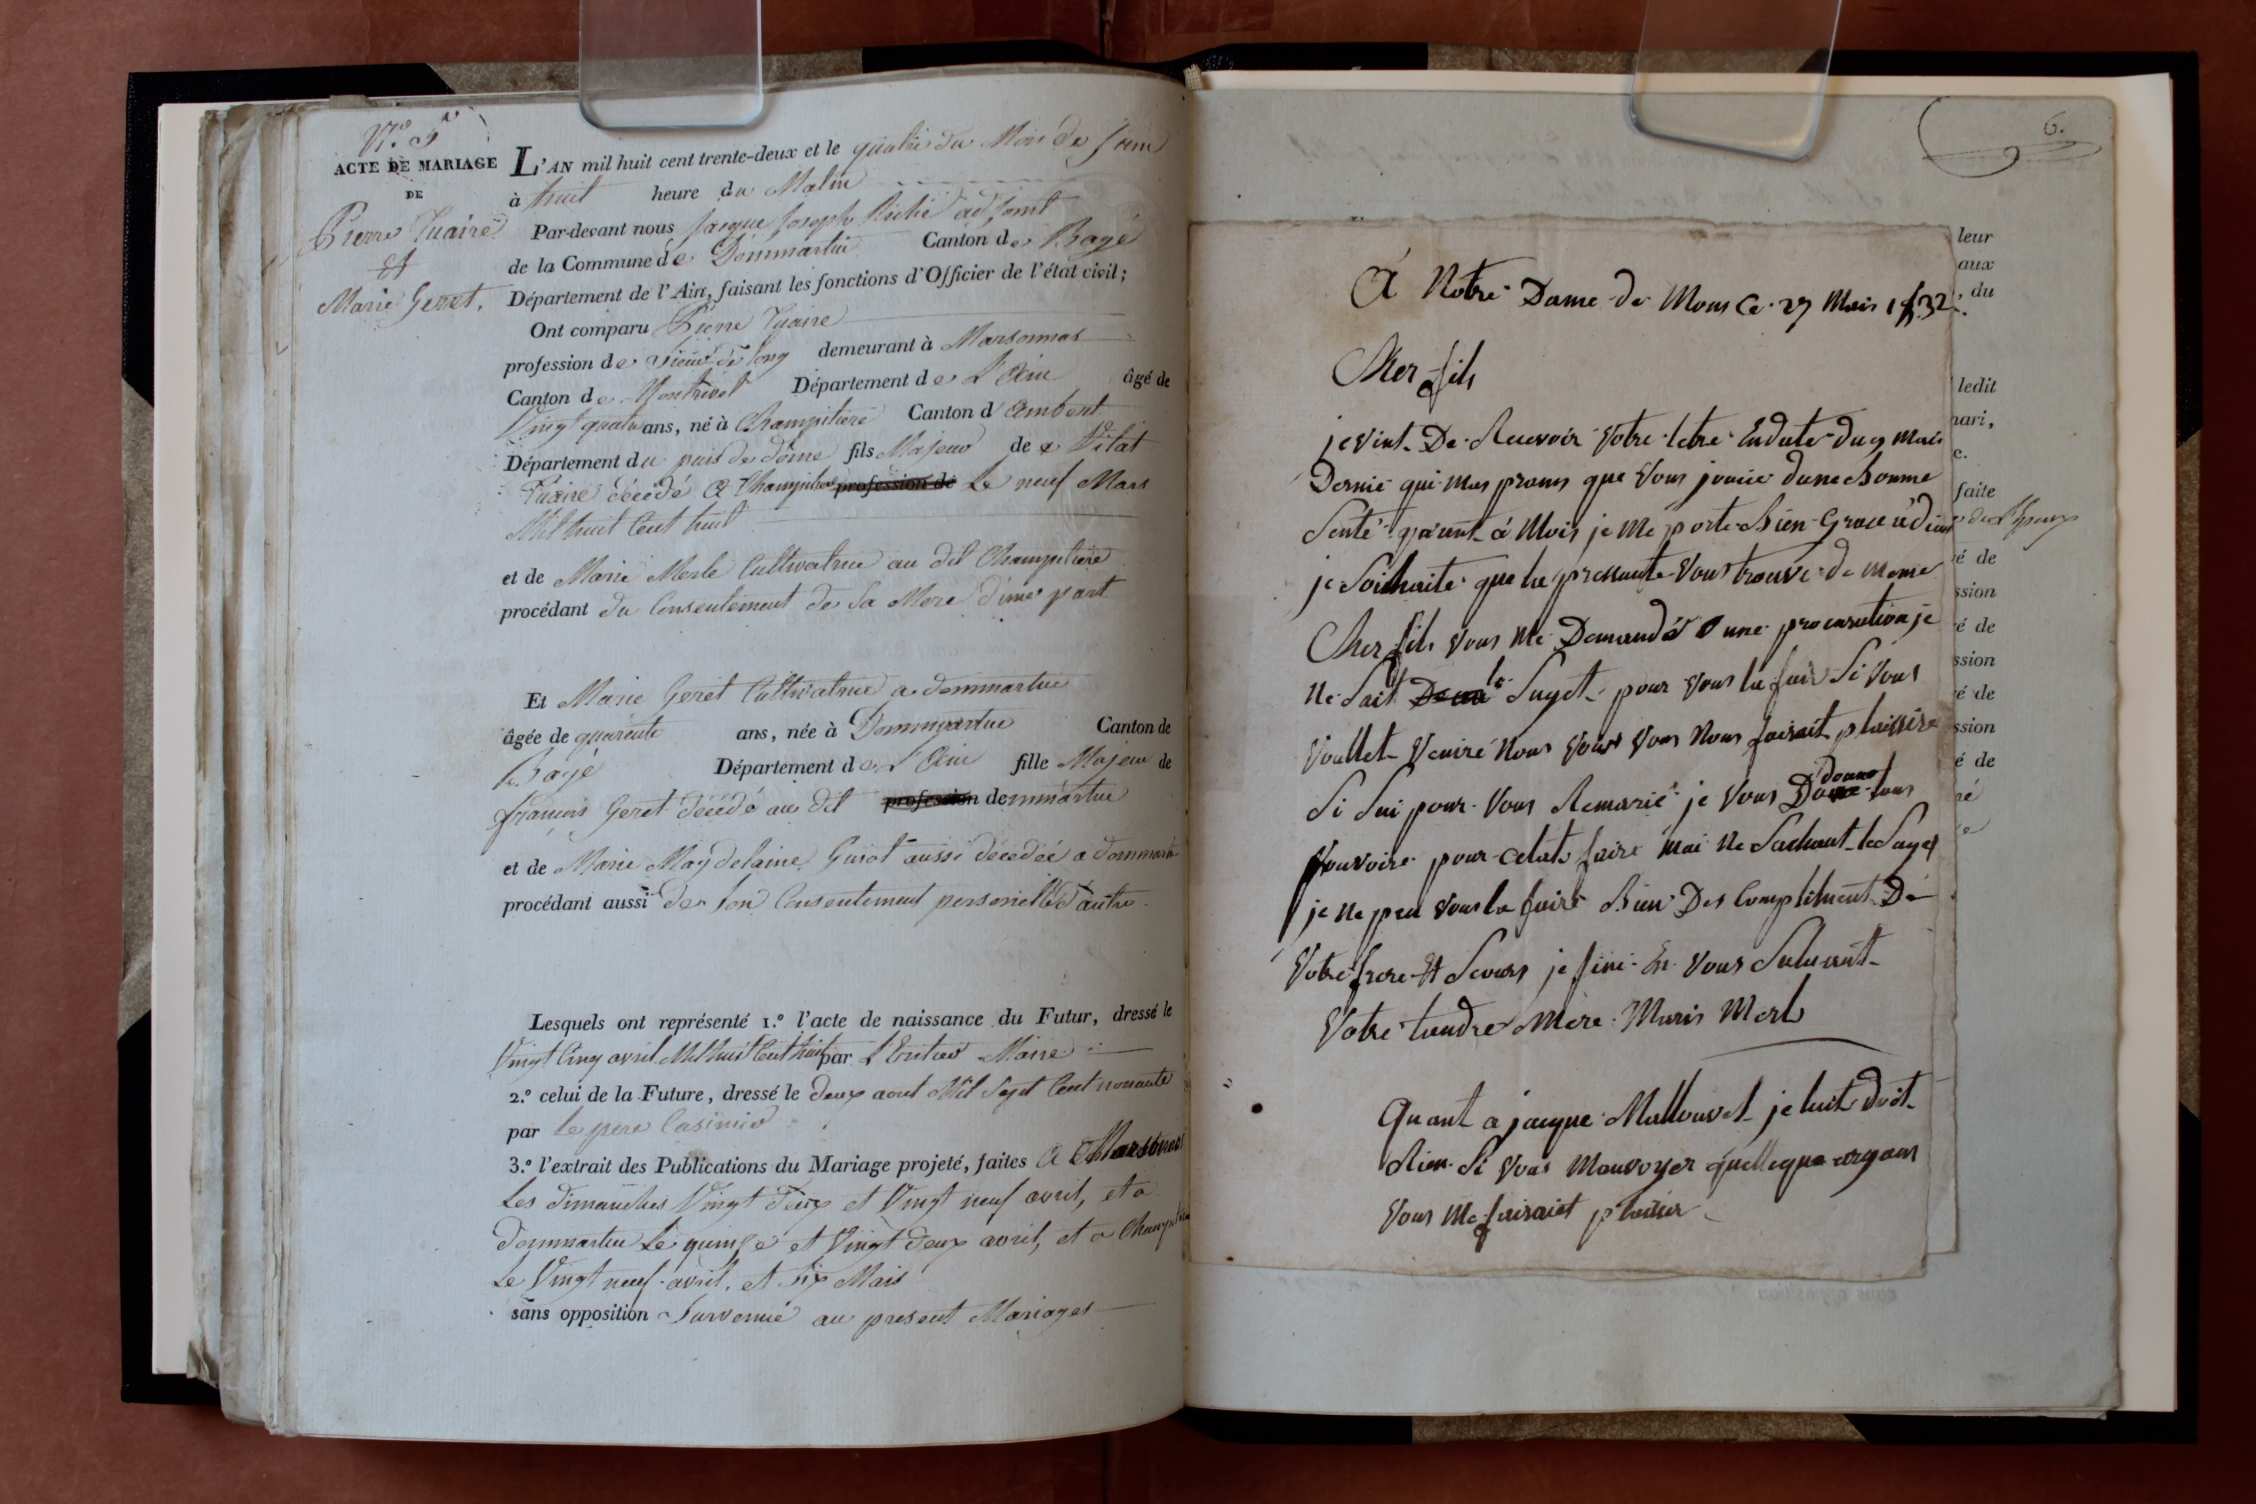 N.o 5
ACTE DE MARIAGE
DE
Pierre Tuaire
et
Marie Geret.
L'AN mil huit cent trente-deux et le quatre du Mois de Juin
à huit heure du Matin
Par-devant nous Jacque Joseph adjoint
de la Commune de Dommartin Canton de Bagé
Département de l'Ain, faisant les fonctions d'Officier de l'état civil;
Ont comparu Pierre Tuaire
profession de sieur de long demeurant à Marsonnas
Canton de Montrevel Département de L'Ain âgé de
Vingt quatre ans, né à Champétière Canton d'ambert
Département du puis de dôme fils Majeur de Vital
Tuaire décédé a Champétiere profession de Le neuf Mars
Mil huit Cent huit
et de Marie Merle Cultivatrice au dit Champetiere
procédant du Consentement de Sa Mere d'une part
Et Marie Geret Cultivatrice a dommartin
âgée de quarente ans, née à Dommartin Canton de
Bagé Département de L'Ain fille Majeur de
françois Geret décédé au dit profession demmartin
et de Marie Maydelaine Guiot aussi décédéé a dommartin
procédant aussi de son Consentement personielle d'autre
Lesquels ont représenté 1.o l'acte de naissance du Futur, dressé le
Vingt Cinq avril Mil huit Cent huit par Maire
2.o celui de la Future, dressé le deux aout Mil Sept Cent nonante
par le pere Casimir
3.o l'extrait des Publications du Mariage projeté, faites A Marsonas
Les dimanches Vingt deux et Vingt neuf avril, et a
dommartin Le quinze et Vingt deux avril, et a Champetiere
Le Vingt neuf avril, et Six Mais
sans opposition Survenue au present Mariages
6.
A Notre Dame de Mons Ce 27 Mais 1832.
Cher fils
je vint De Recevoir Votre letre Endate du 9 Mais
Dernié qui mas prouvs que Vous jouiié dune Bonne
Senté qu'unt á Mois je Me porte Bien Grace á dieu
je Soihaite que la pressante Vous trouve de meme
Cher fils Vous Me Demandér une procuration je
Ne Sait le Sugét pour Vous la fair Si Vous
Voullet Veniré Nous Voir Vous Nous fairait plaissire
Si Sui pour Vous Remarié je Vous donne tous
Pouvoire pour celat faire mai Ne Sachant le Suget
je Ne peu Vous la faire Bien Des Compliment De
Votre frere Et Seours je fini En Vous Saluant
Votre tendre Mère Maris Merle
Quant a jacque Mallouvet je luit doit
Rien Si Vous Mouvoyer quelleque argean
Vous Me fairaiet plaisir
leur
aux
du
ledit
nari,
c.
faite
de L'Epoux
é de
ssion
é de
ssion
é de
ssion
é de
né